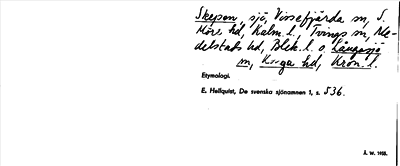 Skepen, sjö, Vissefjärda sn, S.
Möre hd, Kalm. l., Tvings sn, Me-
delstads hd, Blek. l. o. Långasjö
sn, Konga hd, Kron. l.
Etymologi.
E. Hellquist, De svenska sjönamnen 1, s. 536.
Å. W. 1955.